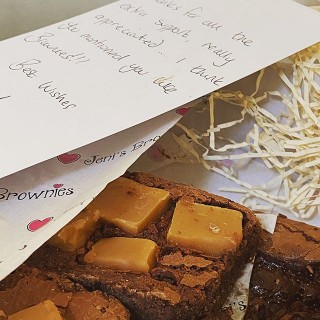 for all the
extra support, really
appreciated - I think
you mentioned you like
Brownies!!
Best Wishes
Jeni's Bro
Brownies